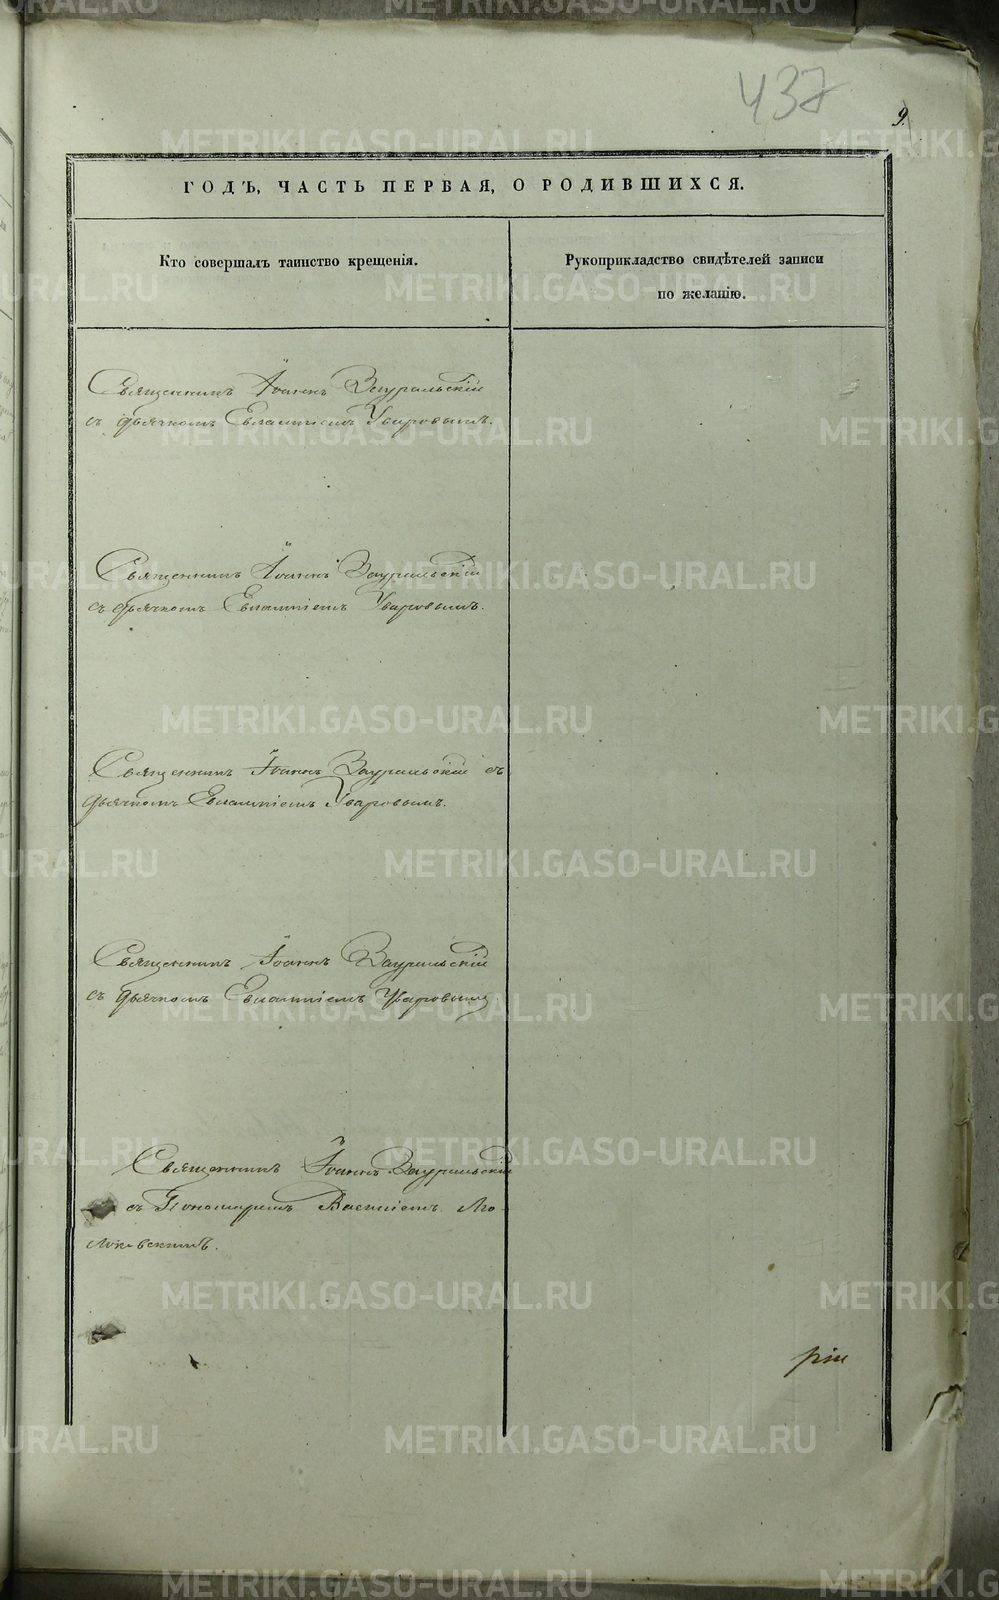 437
9.
ГОДЪ, ЧАСТЬ ПЕРВАЯ, О РОДИВШИХСЯ.
Кто совершалъ таинство крещенія.
Рукоприкладство свидѣтелей записи
по желанію.
Священникъ Іоаннъ Зауральскій
съ дьячкомъ Евлампіемъ Уваровымъ.
Священникъ Іоаннъ Зауральскій
съ дьячкомъ Евлампіемъ Уваровымъ.
Священникъ Іоаннъ Зауральскій съ
дьячкомъ Евлампіемъ Уваровымъ.
Священникъ Іоаннъ Зауральскій
съ дьячкомъ Евлампіемъ Уваровымъ
Священникъ Іоаннъ Зауральскій
съ Пономаремъ Василіемъ
METRIKI.GASO-URAL.RU